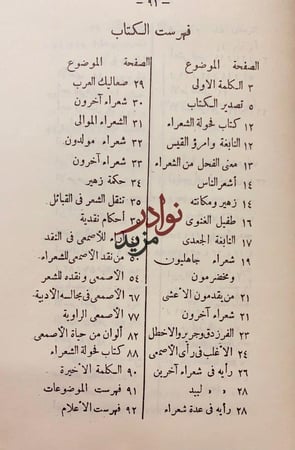 – ٩١ –
فهرست الكتاب
الصفحة الموضوع
٣ الكلمة الاولى
٥ تصدير الكتاب
١٢ كتاب فحولة الشعراء
١٢ النابغة وامرؤ القيس
١٣ معنى الفحل من الشعراء
١٤ أشعر الناس
١٤ زهير ومكانته
١٦ طفيل الغنوى
١٧ النابغة الجعدى
١٩ شعراء جاهليون
ومخضرمون
٢١ من يقدمون الأعشى
٢١ شعراء آخرون
٢٢ الفرزدق وجرير والاخطل
٢٤ الاغلب فى رأى الأصمعى
٢٦ رأيه فى شعراء آخرين
٢٨ » » لبيد
٢٨ رأيه فى عدة شعراء
الصفحة الموضوع
٢٩ صعاليك العرب
٣٠ شعراء آخرون
٣١ الشعراء الموالى
٣٢ شعراء مولدون
٣٣ شعراء آخرون
٣٤ حكمة زهير
٣٥ تنقل الشعر فى القبائل
٣٥ أحكام نقدية
للأصمعى فى النقد
من نقد الأصمعى للشعراء.
٥٤ الأصمعى ونقده للشعر
٦٧ الأصمعى فى مجالسه الأدبية.
٧٧ الأصمعى الراوية
٨٢ ألوان من حياة الأصمعى
٨٨ كتاب فحولة الشعراء
٩٠ الكلمة الأخيرة
٩١ فهرست الموضوعات
٩٢ فهرست الأعلام
نوادر
مزيد